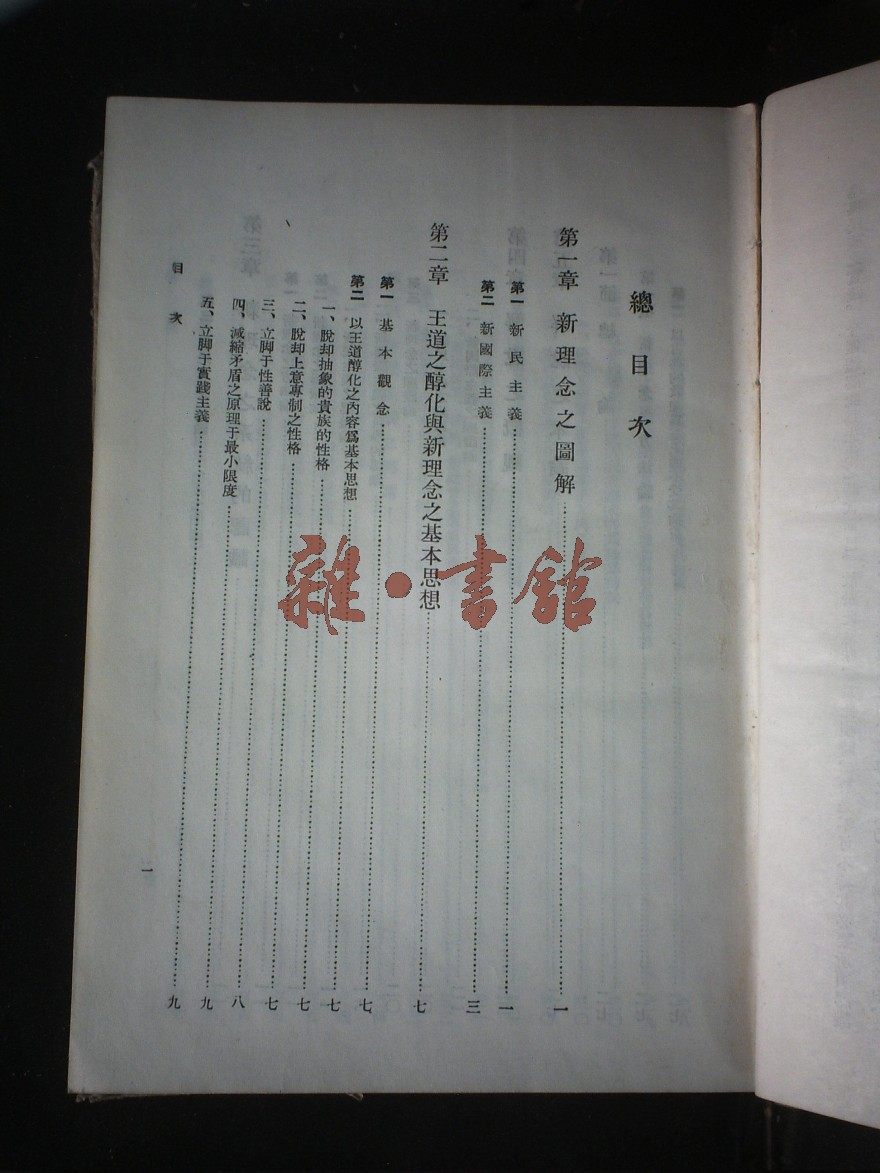 總目次
第一章 新理念之圖解……一
第一 新民主義……一
第二 新國際主義……三
第二章 王道之醇化與新理念之基本思想……七
第一 基本觀念……七
第二 以王道醇化之內容爲基本思想……七
一、脫却抽象的貴族的性格……七
二、脫却上意專制之性格……七
三、立脚于性善說……八
四、減縮矛盾之原理于最小限度……九
五、立脚于實踐主義……九
目次
一
雜·書館